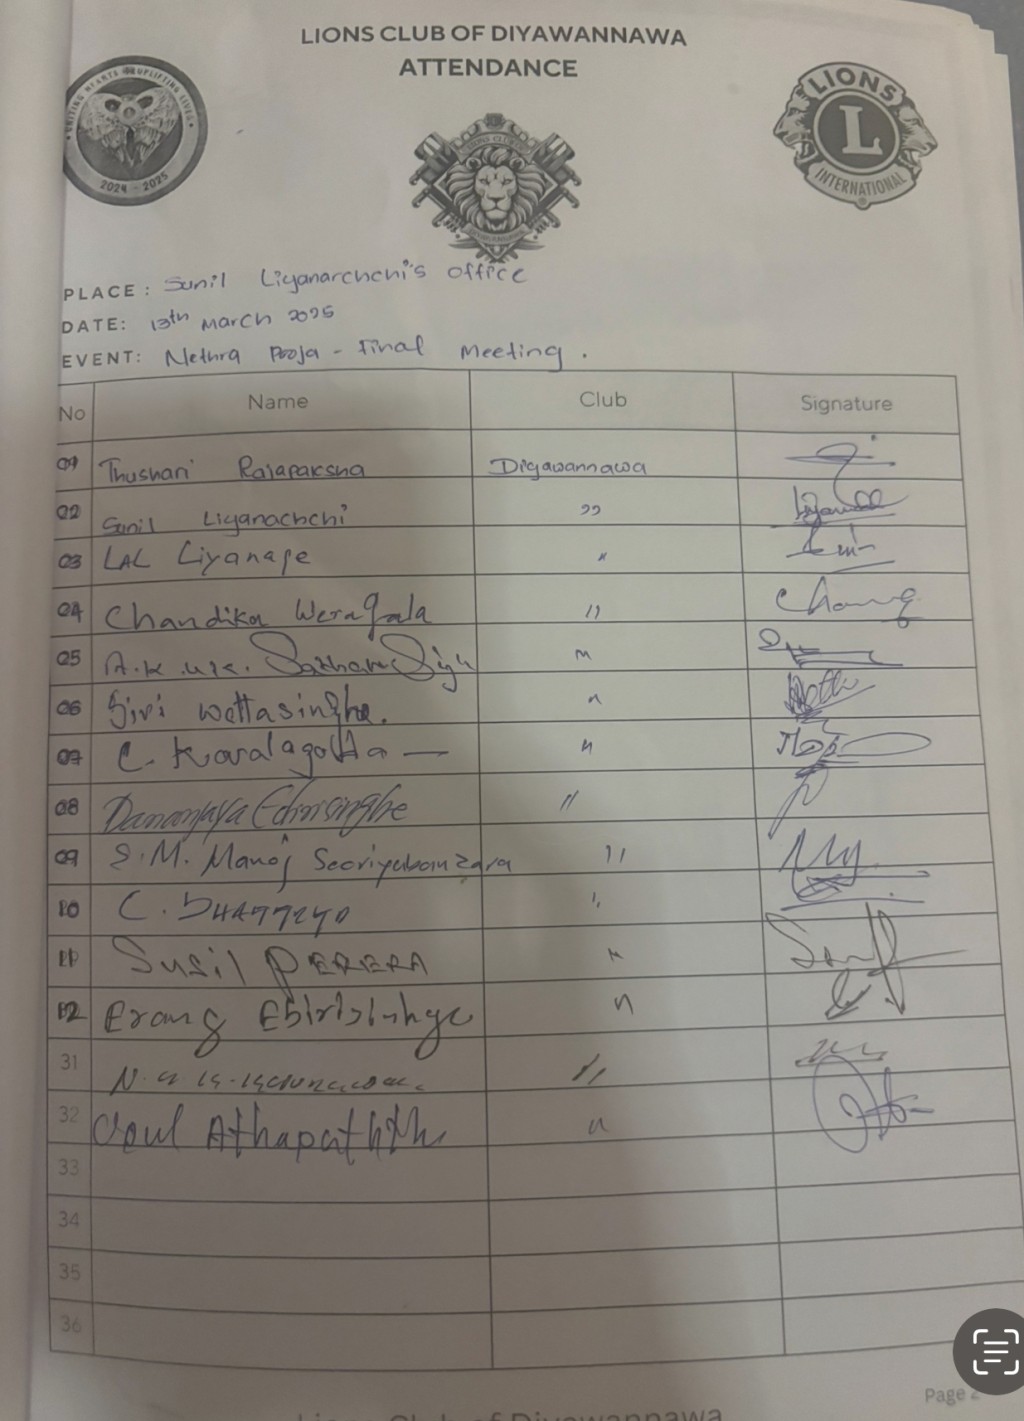 LIONS CLUB OF DIYAWANNAWA
ATTENDANCE
UNITING HEARTS UPLIFTING LIVES
2024 - 2025
LIONS CLUB
LIONS
L
INTERNATIONAL
PLACE: Sunil Liyanarchchi's office
DATE: 13th March 2025
EVENT: Nethra Pooja - Final Meeting.
No Name Club Signature
01 Thushari Rajapaksha Diyawannawa
02 Sunil Liyanachchi ,,
03 LAL Liyanage "
04 Chandika Weragala "
05 A.K. "
06 Siri Wettasinghe. "
07 C. Karalagotta — "
08 Dananjaya Edirisinghe "
09 S.M. Manoj Sooriyabandara "
10 C. "
11 Susil PERERA "
12 Erang "
31 "
32 Athapaththu "
33
34
35
36
Page 2
Lions Club of Diyawannawa